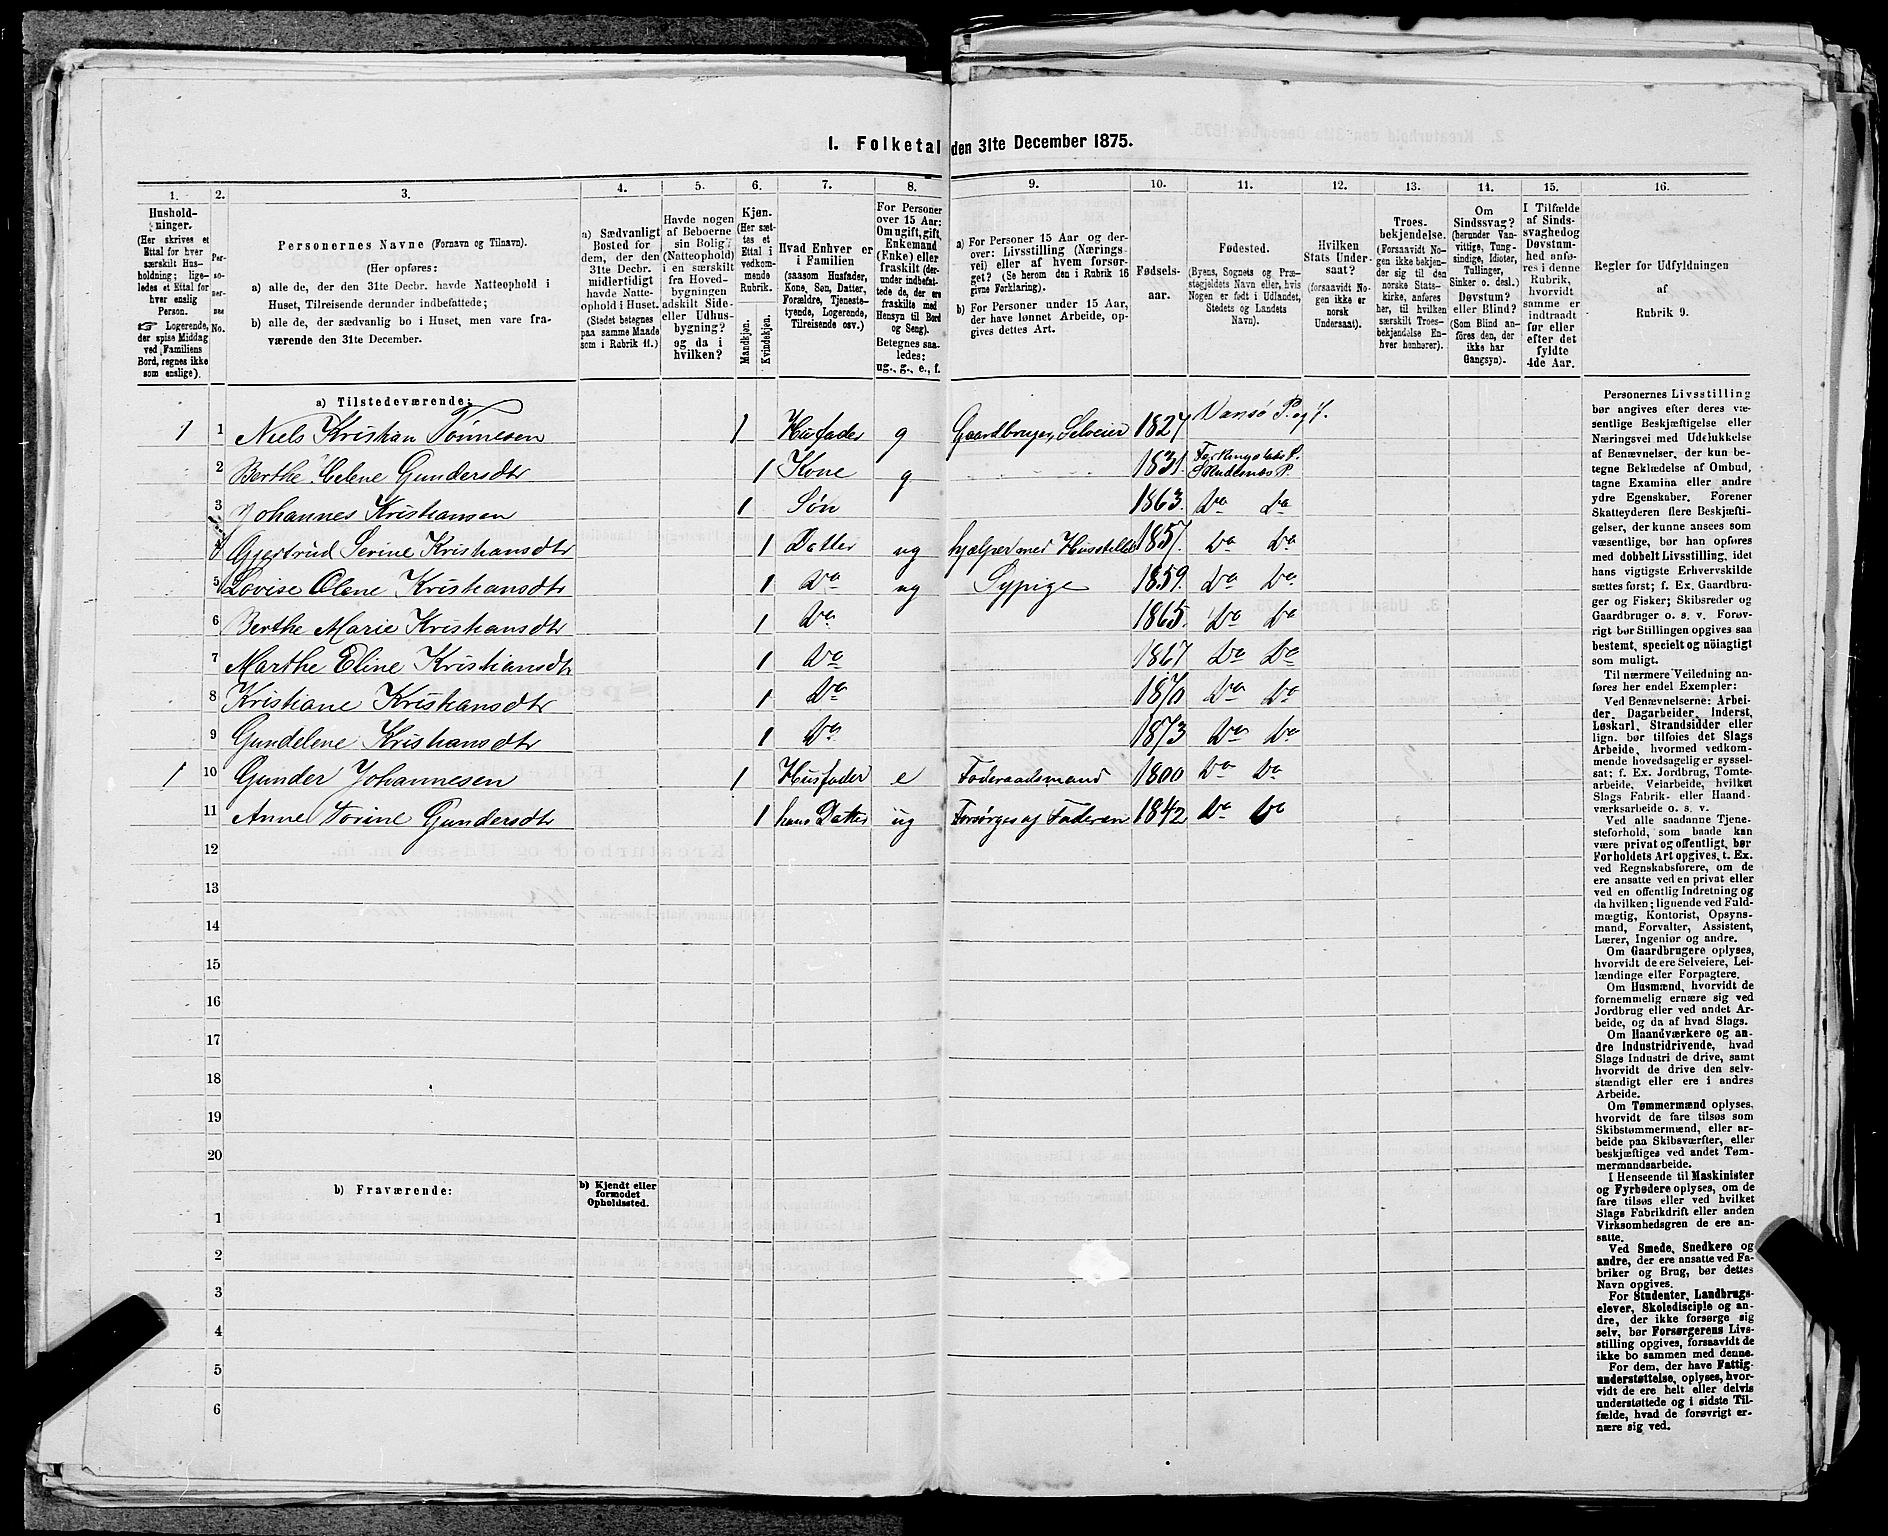 1. Folketal den 31te December 1875.
1. 2. 3. 4. 5. 6. 7. 8. 9. 10. 11. 12. 13. 14. 15. 16.
Hushold-
ninger.
(Her skrives et
Ettal for hver
særskilt Hus-
holdning; lige-
ledes et Ettal for
hver enslig
Person.
☞ Logerende,
der spise Middag
ved Familiens
Bord, regnes ikke
som enslige).
Per-
so-
ner-
nes
No.
Personernes Navne (Fornavn og Tilnavn).
(Her opføres:
a) alle de, der den 31te Decbr. havde Natteophold i
Huset, Tilreisende derunder indbefattede;
b) alle de, der sædvanlig bo i Huset, men vare fra-
værende den 31te December.
a) Sædvanligt
Bosted for
dem, der den
31te Decbr.
midlertidigt
havde Natte-
ophold i Huset.
(Stedet betegnes
paa samme Maade
som i Rubrik 11.)
Havde nogen
af Beboerne
sin Bolig
(Natteophold)
i en særskilt
fra Hoved-
bygningen
adskilt Side-
eller Udhus-
bygning?
og da i
hvilken?
Kjøn.
(Her sæt-
tes et
Ettal i
vedkom-
mende
Rubrik.
Mandkjøn.
Kvindekjøn.
Hvad Enhver er
i Familien
(saasom Husfader,
Kone, Søn, Datter,
Forældre, Tjeneste-
tyende, Logerende,
Tilreisende osv.)
For Personer
over 15 Aar:
Om ugift, gift,
Enkemand
(Enke) eller
fraskilt (der-
under indbefat-
tede de, der ere
fraskilte med
Hensyn til Bord
og Seng).
Betegnes saa-
ledes:
ug., g., e., f.
a) For Personer 15 Aar og der-
over: Livsstilling (Nærings-
vei) eller af hvem forsør-
get? (Se herom den i Rubrik 16
givne Forklaring).
b) For Personer under 15 Aar,
der have lønnet Arbeide, op-
gives dettes Art.
Fødsels-
aar.
Fødested.
(Byens, Sognets og Præ-
stegjeldets Navn eller, hvis
Nogen er født i Udlandet,
Stedets og Landets
Navn).
Hvilken
Stats Under-
saat?
(forsaavidt No-
gen ikke er
norsk
Undersaat).
Troes-
bekjendelse.
(Forsaavidt No-
gen ikke bekjen-
der sig til den
norske Stats-
kirke, anføres
her, til hvilken
særskilt Troes-
bekjendelse En-
hver henhører).
Om
Sindssvag?
(herunder Van-
vittige, Tung-
sindige, Idioter,
Tullinger,
Sinker o. desl.)
Døvstum?
eller Blind?
(Som Blind an-
føres den, der
ikke har
Gangsyn).
I Tilfælde
af Sinds-
svaghed og
Døvstum-
hed anfø-
res i denne
Rubrik,
hvorvidt
samme er
indtraadt
før eller
efter det
fyldte
4de Aar.
Regler for Udfyldningen
af
Rubrik 9.
a) Tilstedeværende:
1 1 Niels Kristian Tönnesen 1 Husfader g Gaardbruger, Selveier 1827 Vansö P. og S.
2 Berthe Helene Gundersdtr 1 Kone g 1831. Skudesnæs P.
3 Johannes Kristiansen 1 Søn 1863. Do Do
4 Gjertrud Serine Kristiansdtr 1 Datter ug hjælper med Husstellet 1857. Do Do
5 Lovise Olene Kristiansdtr 1 Do ug Sypige 1859. Do Do
6 Berthe Marie Kristiansdtr 1 Do 1865. Do Do
7 Marthe Eline Kristiansdtr 1 Do 1867 Do Do
8 Kristiane Kristiansdtr 1 Do 1870 Do Do
9 Gundelene Kristiansdtr 1 Do 1873 Do Do
1 10 Gunder Johannesen 1 Husfader e Föderaadsmand 1800 Do Do
11 Anne Torine Gundersdtr 1 hans Datter ug Forsörges af Faderen 1842 Do Do
12
13
14
15
16
17
18
19
20
b) Fraværende:
b) Kjendt eller
formodet
Opholdssted.
1
2
3
4
5
6
Personernes Livsstilling
bør angives efter deres væ-
sentlige Beskjæftigelse eller
Næringsvei med Udelukkelse
af Benævnelser, der kun be-
tegne Beklædelse af Ombud,
tagne Examina eller andre
ydre Egenskaber. Forener
Skatteyderen flere Beskjæfti-
gelser, der kunne ansees som
væsentlige, bør han opføres
med dobbelt Livsstilling, idet
hans vigtigste Erhvervskilde
sættes først; f. Ex. Gaardbru-
ger og Fisker; Skibsreder og
Gaardbruger o. s. v. Forøv-
rigt bør Stillingen opgives saa
bestemt, specielt og nöiagtigt
som muligt.
Til nærmere Veiledning an-
føres her endel Exempler:
Ved Benævnelserne: Arbei-
der, Dagarbeider, Inderst,
Løskarl, Strandsidder eller
lign. bør tilføies det Slags
Arbeide, hvormed vedkom-
mende hovedsagelig er syssel-
sat; f. Ex. Jordbrug, Tomte-
arbeide, Veiarbeide, hvilket
Slags Fabrik- eller Haand-
værksarbeide o. s. v.
Ved alle saadanne Tjene-
steforhold, som baade kan
være privat og offentligt, bør
Forholdets Art opgives, t. Ex.
ved Regnskabsførere, om de
ere ansatte ved en privat eller
ved en offentlig Indretning og
da hvilken; lignende ved Fuld-
mægtig, Kontorist, Opsyns-
mand, Forvalter, Assistent,
Lærer, Ingeniør og andre.
Om Gaardbrugere oplyses,
hvorvidt de ere Selveiere, Lei-
lændinge eller Forpagtere.
Om Husmænd, hvorvidt de
fornemmelig ernære sig ved
Jordbrug eller ved andet Ar-
beide, og da af hvad Slags.
Om Haandværkere og an-
dre Industridrivende, hvad
Slags Industri de drive, samt
hvorvidt de drive den selv-
stændigt eller ere i andres
Arbeide.
Om Tømmermænd oplyses,
hvorvidt de fare tilsøs som
Skibstømmermænd, eller ar-
beide paa Skibsværfter, eller
beskjæftiges ved andet Tøm-
mermandsarbeide.
I Henseende til Maskinister
og Fyrbødere oplyses, om de
fare tilsøs eller ved hvilket
Slags Fabrikdrift eller anden
Virksomhedsgren de ere an-
satte.
Ved Smede, Snedkere og
andre, der ere ansatte ved Fa-
briker og Brug, bør dettes
Navn opgives.
For Studenter, Landbrugs-
elever, Skoledisciple og an-
dre, der ikke forsørge sig
selv, bør Forsørgerens Livs-
stilling opgives, forsaavidt de
ikke bo sammen med denne.
For dem, der have Fattig-
understøttelse, oplyses, hvor-
vidt de ere helt eller delvis
understøttede og i sidste Til-
fælde, hvad de forøvrigt er-
nære sig ved.